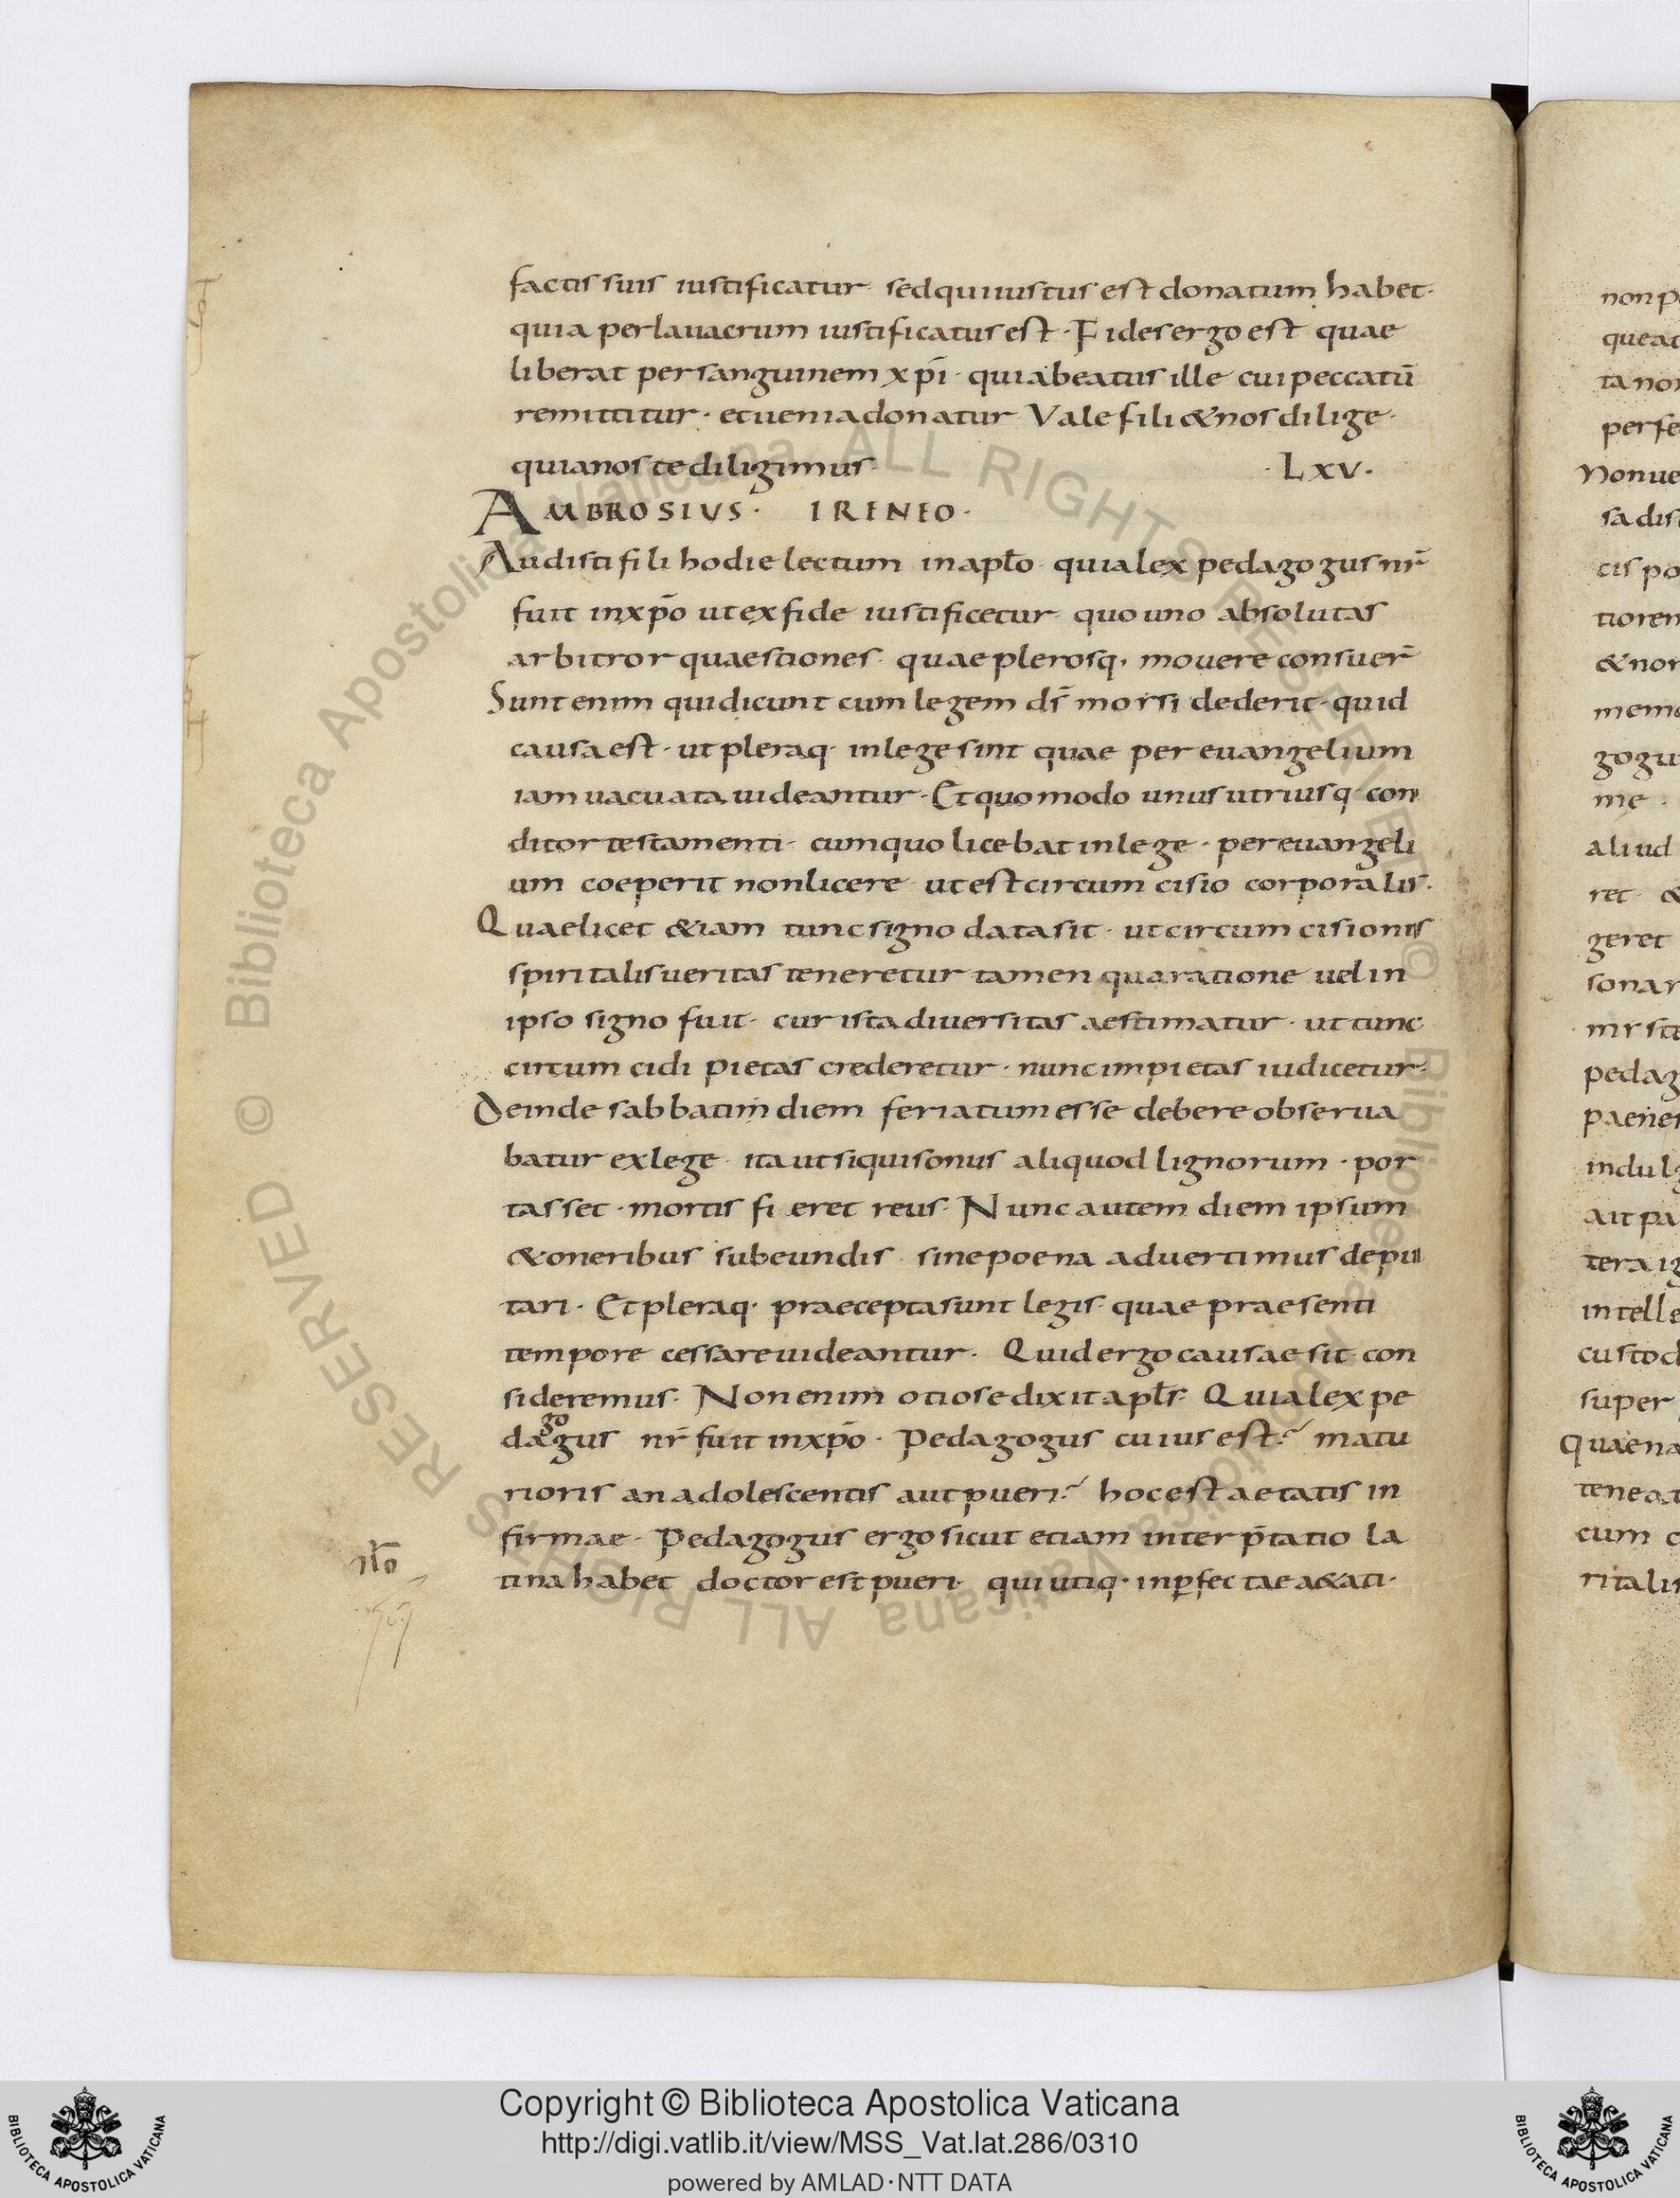 factis suis iustificatur· sed qui iustus est donatum habet·
quia per lauacrum iustificatus est· Fides ergo est quae
liberat per sanguinem xp̄i· quia beatus ille cui peccatū
remittitur· et uenia donatur Vale fili & nos dilige·
quia nos te diligimus· ·LXV·
AMBROSIUS· IRENEO·
Audisti fili hodie lectum in aplō· quia lex pedagogus nr̄
fuit in xp̄o ut ex fide iustificetur· quo uno absolutas
arbitror quaestiones· quae plerosq· mouere consuer̄
Sunt enim qui dicunt cum legem ds̄ moysi dederit· quid
causa est· ut pleraq· in lege sint quae per euangelium
iam uacuata uideantur· Et quomodo unus utriusq· con
ditor testamenti· cum quo licebat in lege· per euangeli
um coeperit non licere ut est circumcisio corporalis·
Quae licet &iam tunc signo data sit· ut circumcisionis
spiritalis ueritas teneretur tamen qua ratione uel in
ipso signo fuit· cur ista diuersitas aestimatur· ut tunc
circumcidi pietas crederetur· nunc impietas iudicetur·
Deinde sabbatim diem feriatum esse debere obserua
batur ex lege· ita ut siquis onus aliquod lignorum· por
tasset· mortis fieret reus· Nunc autem diem ipsum
& oneribus subeundis· sine poena aduertimus depu
tari· Et pleraq· praecepta sunt legis· quae praesenti
tempore cessare uideantur· Quid ergo causae sit con
sideremus· Non enim otiose dixit apls̄· Quia lex pe
go
dagus nr̄ fuit in xp̄o· Pedagogus cuius est? matu
rioris an adolescentis aut pueri? hoc est aetatis in
firmae· Pedagogus ergo sicut etiam interp̄tatio la
tina habet doctor est pueri· qui utiq· inꝑfectae a&ati·
non p
quea
ta no
perfe
Non ue
sa dis
cis po
tioren
& nor
mem
gogu
me·
aliud
ret· &
geret
sonar
pedag
paene
indulg
ait pa
tera ig
intelle
custod
super
Quaena
tenea
cum c
ritalis
Copyright © Biblioteca Apostolica Vaticana
http://digi.vatlib.it/view/MSS_Vat.lat.286/0310
powered by AMLAD·NTT DATA
BIBLIOTECA APOSTOLICA VATICANA
BIBLIOTECA APOSTOLICA VATICANA
© Biblioteca Apostolica Vaticana ALL RIGHTS RESERVED © Biblioteca Apostolica Vaticana ALL RIGHTS RESERVED